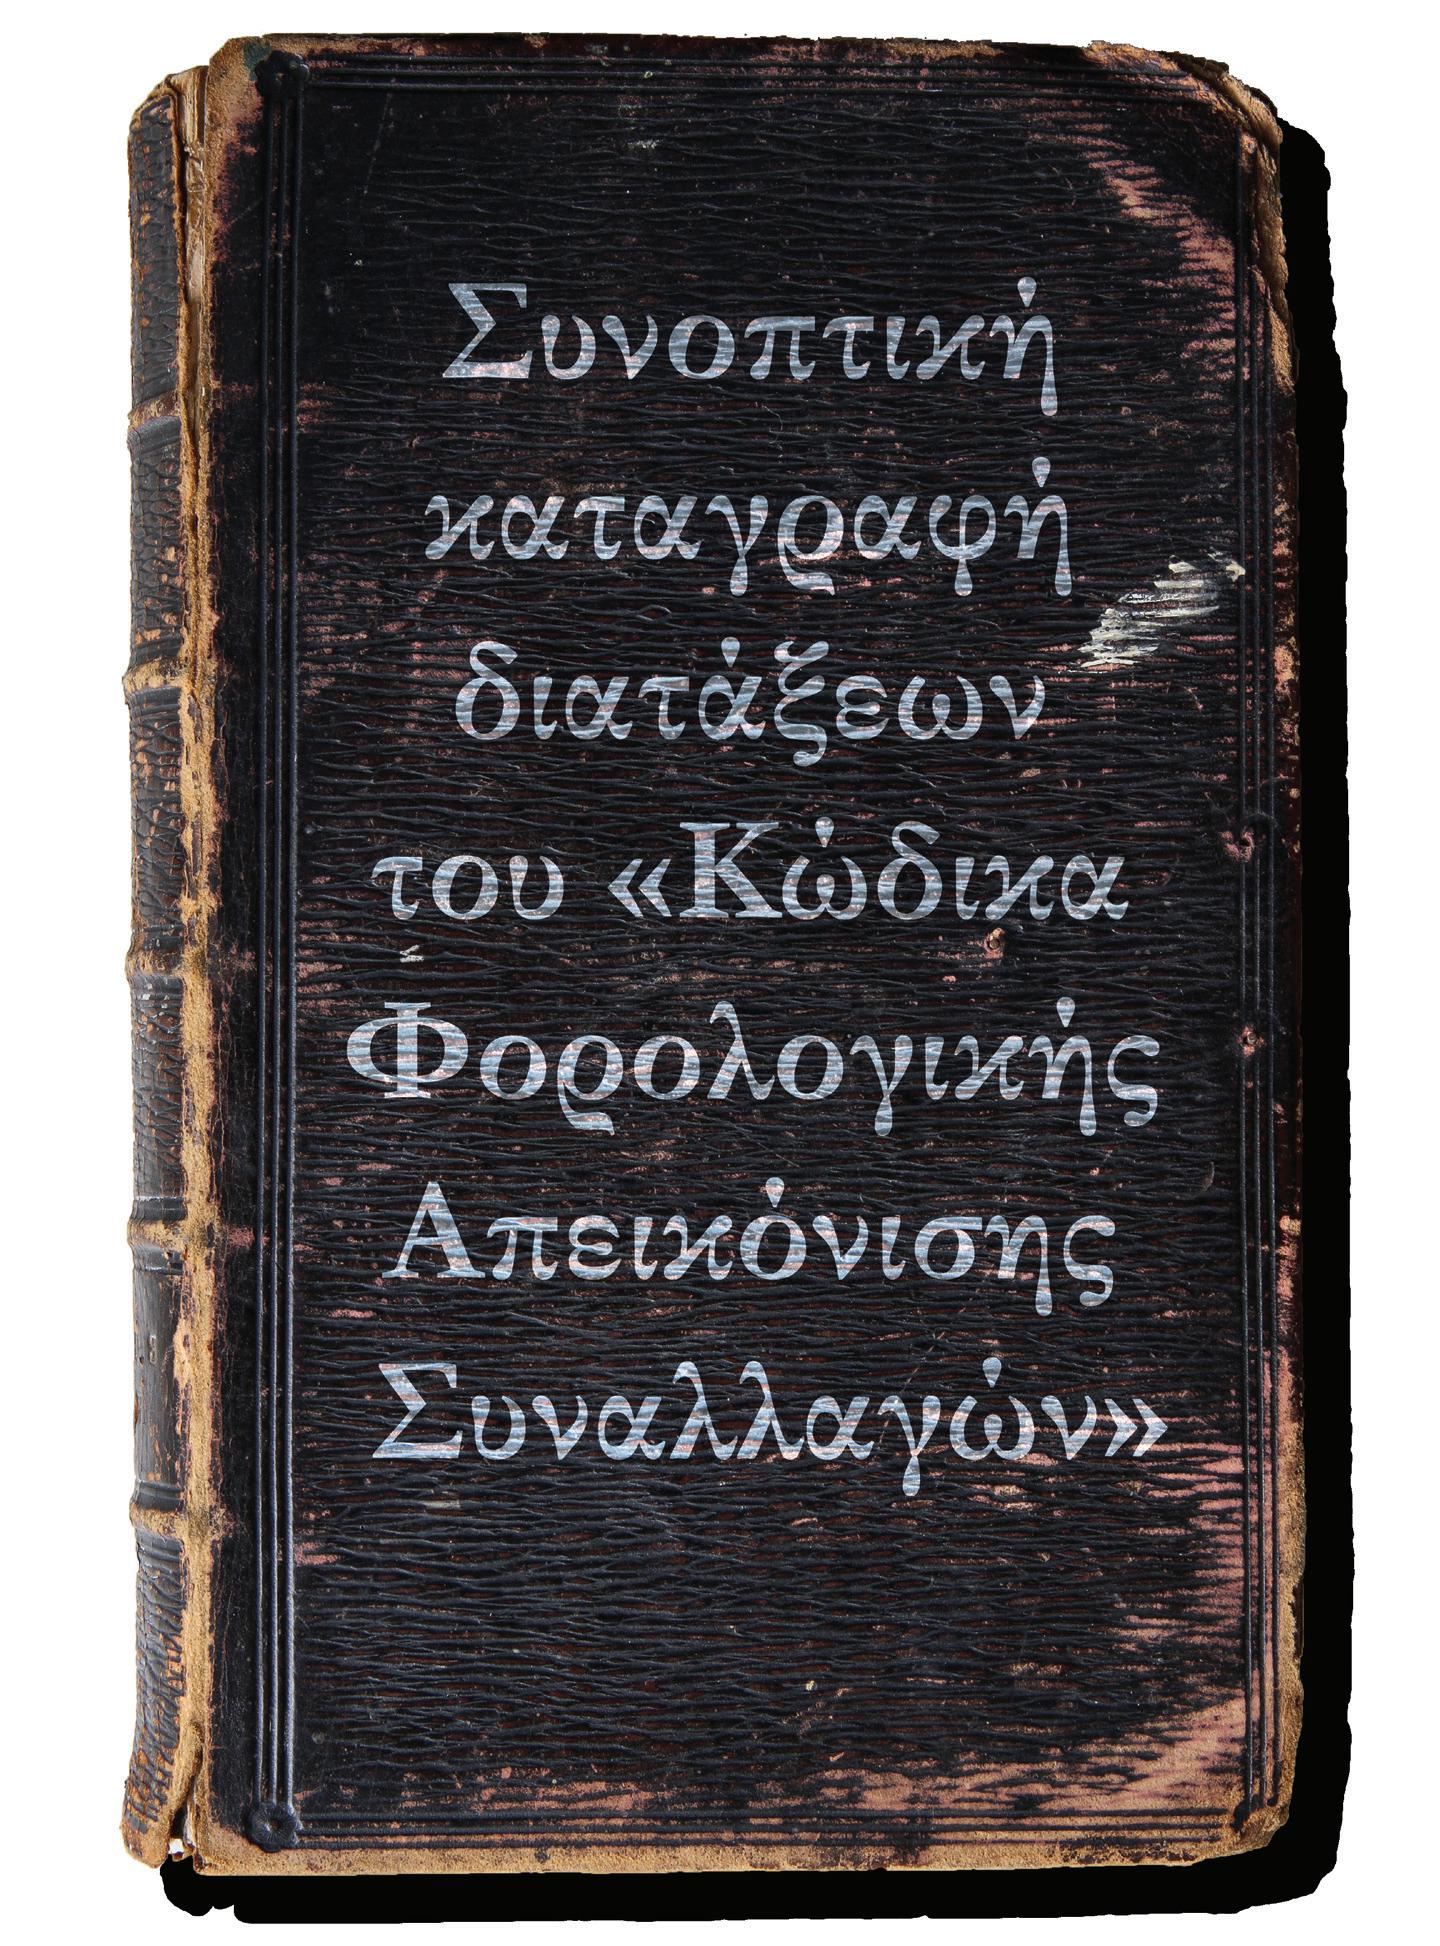 Συνοπτική
καταγραφή
διατάξεων
του «Κώδικα
Φορολογικής
Απεικόνισης
Συναλλαγών»